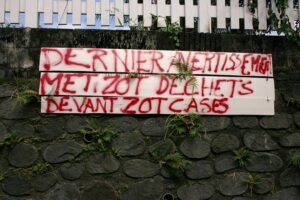 DERNIER AVERTISSEMENT
METI ZOT DECHETS
DEVANT ZOT CASES